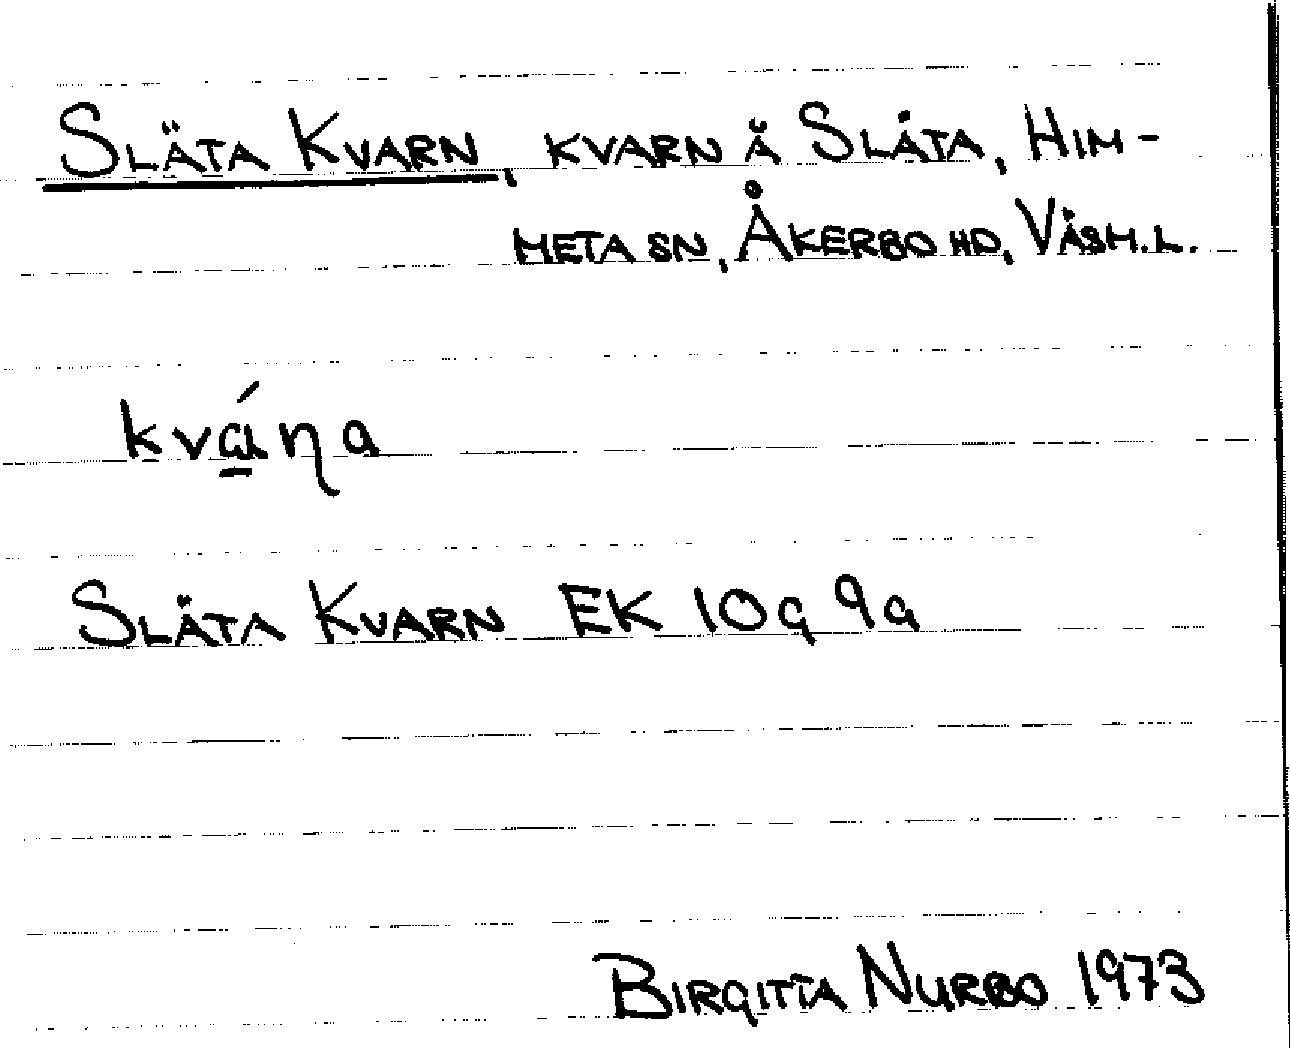 SLÄTA KVARN, KVARN Å SLÄTA, HIM-
META SN, ÅKERBO HD, VÄSM.L.
kvȧ́ṇa
SLÄTA KVARN EK 10g 9a
BIRGITTA NURBO 1973